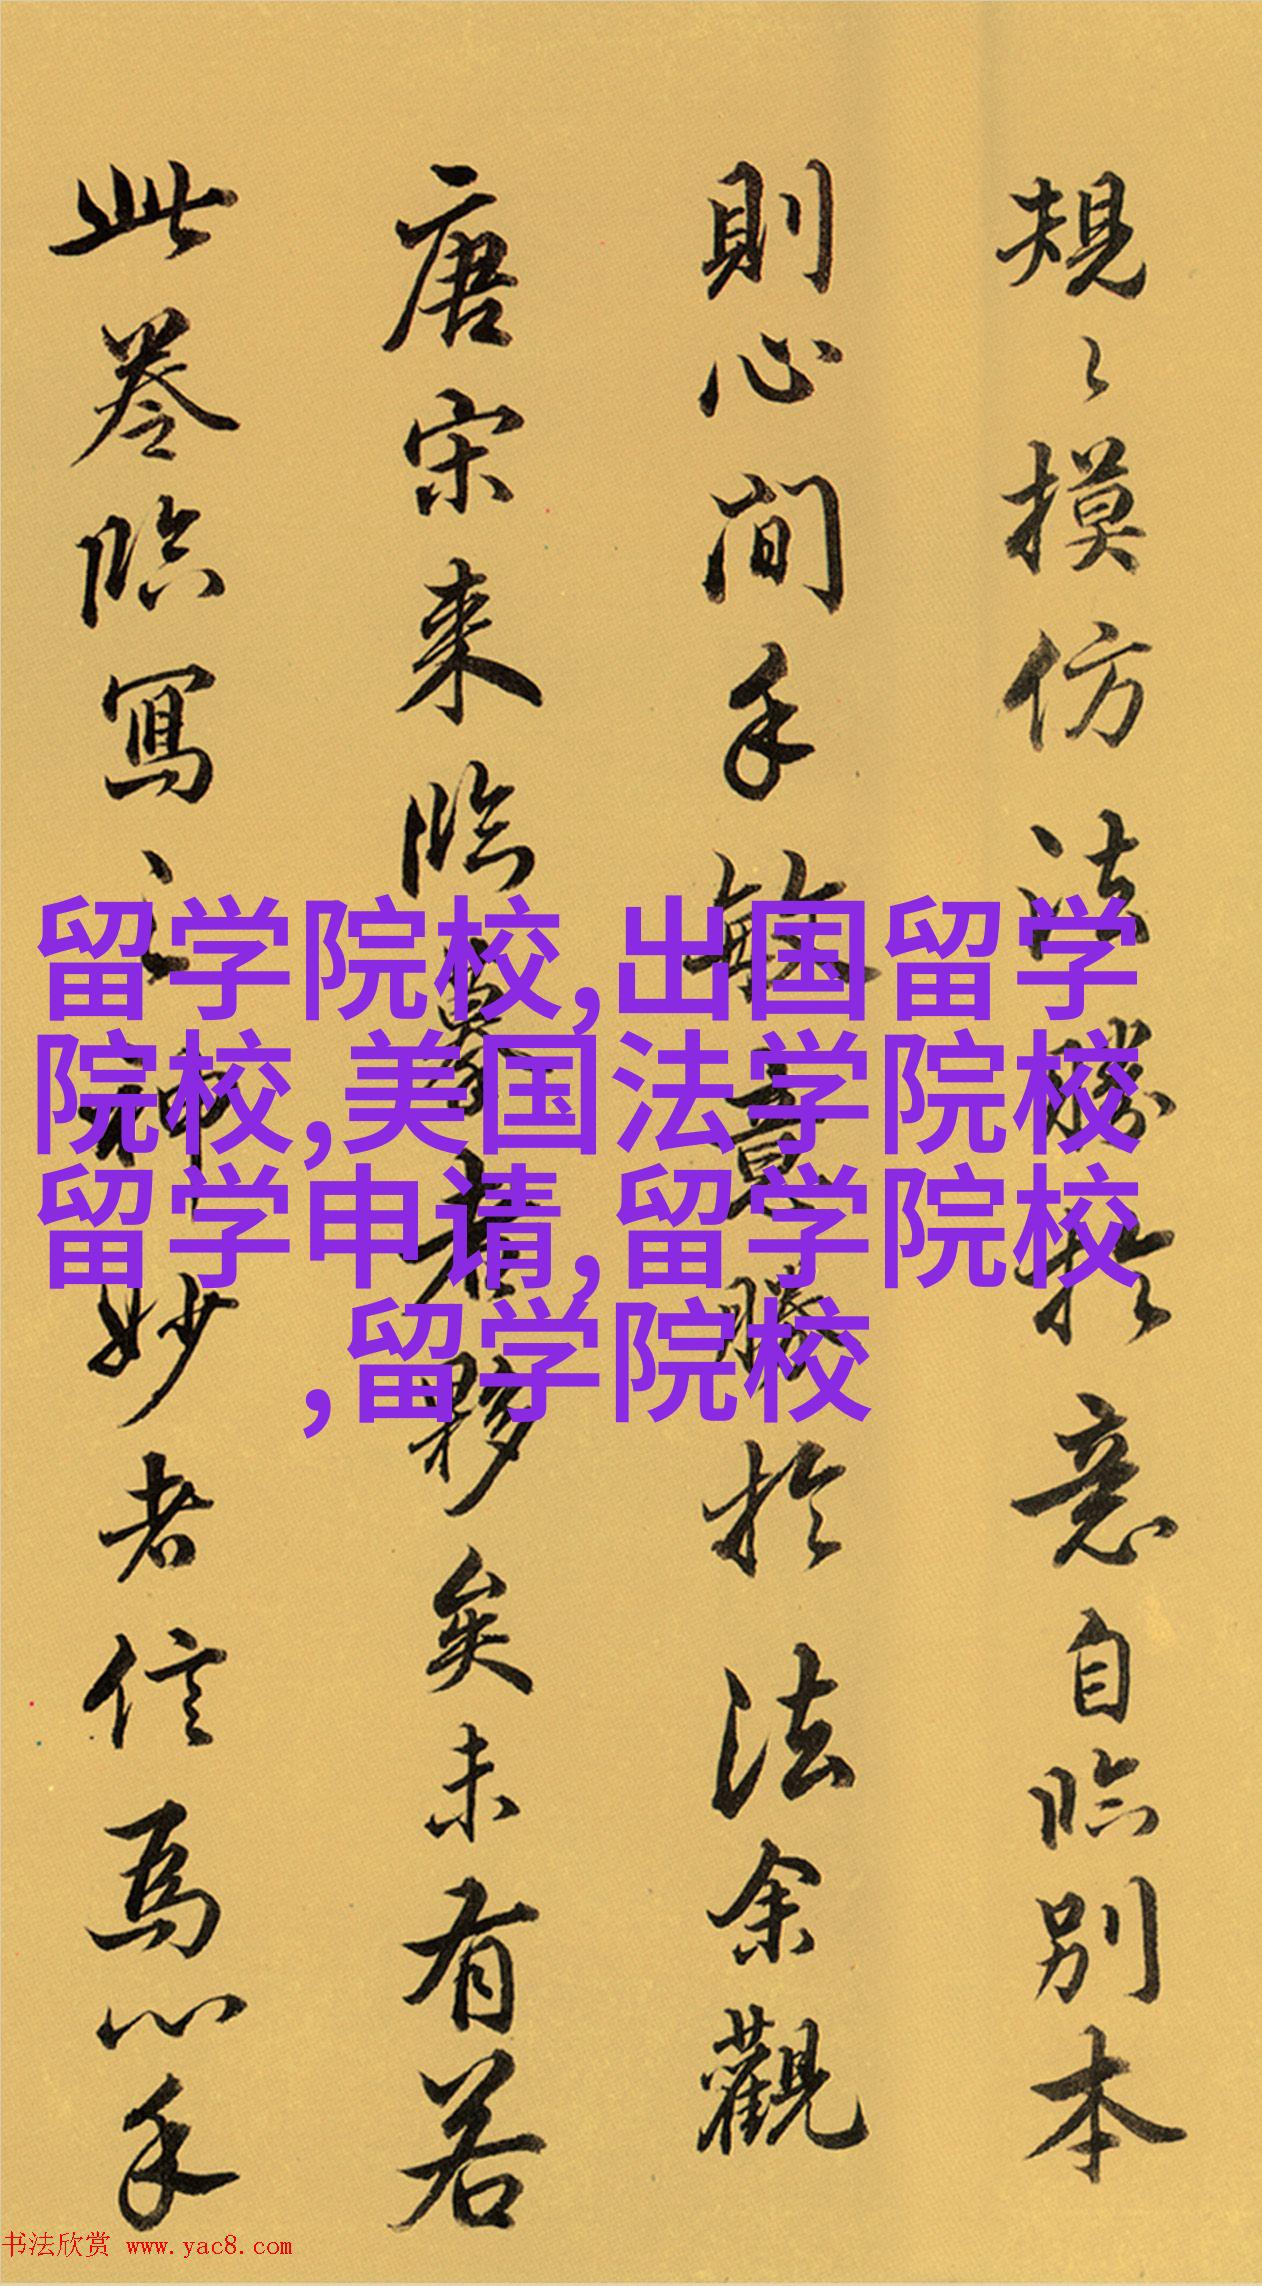 規〻摸仿法勝於意自臨別本
則心間手敏意勝於法余觀
唐宋來臨摹者夥矣未有若
此卷臨寫之神妙者信爲心手
留学院校,出国留学
院校,美国法学院校
留学申请,留学院校
,留学院校
书法欣赏 www.yac8.com